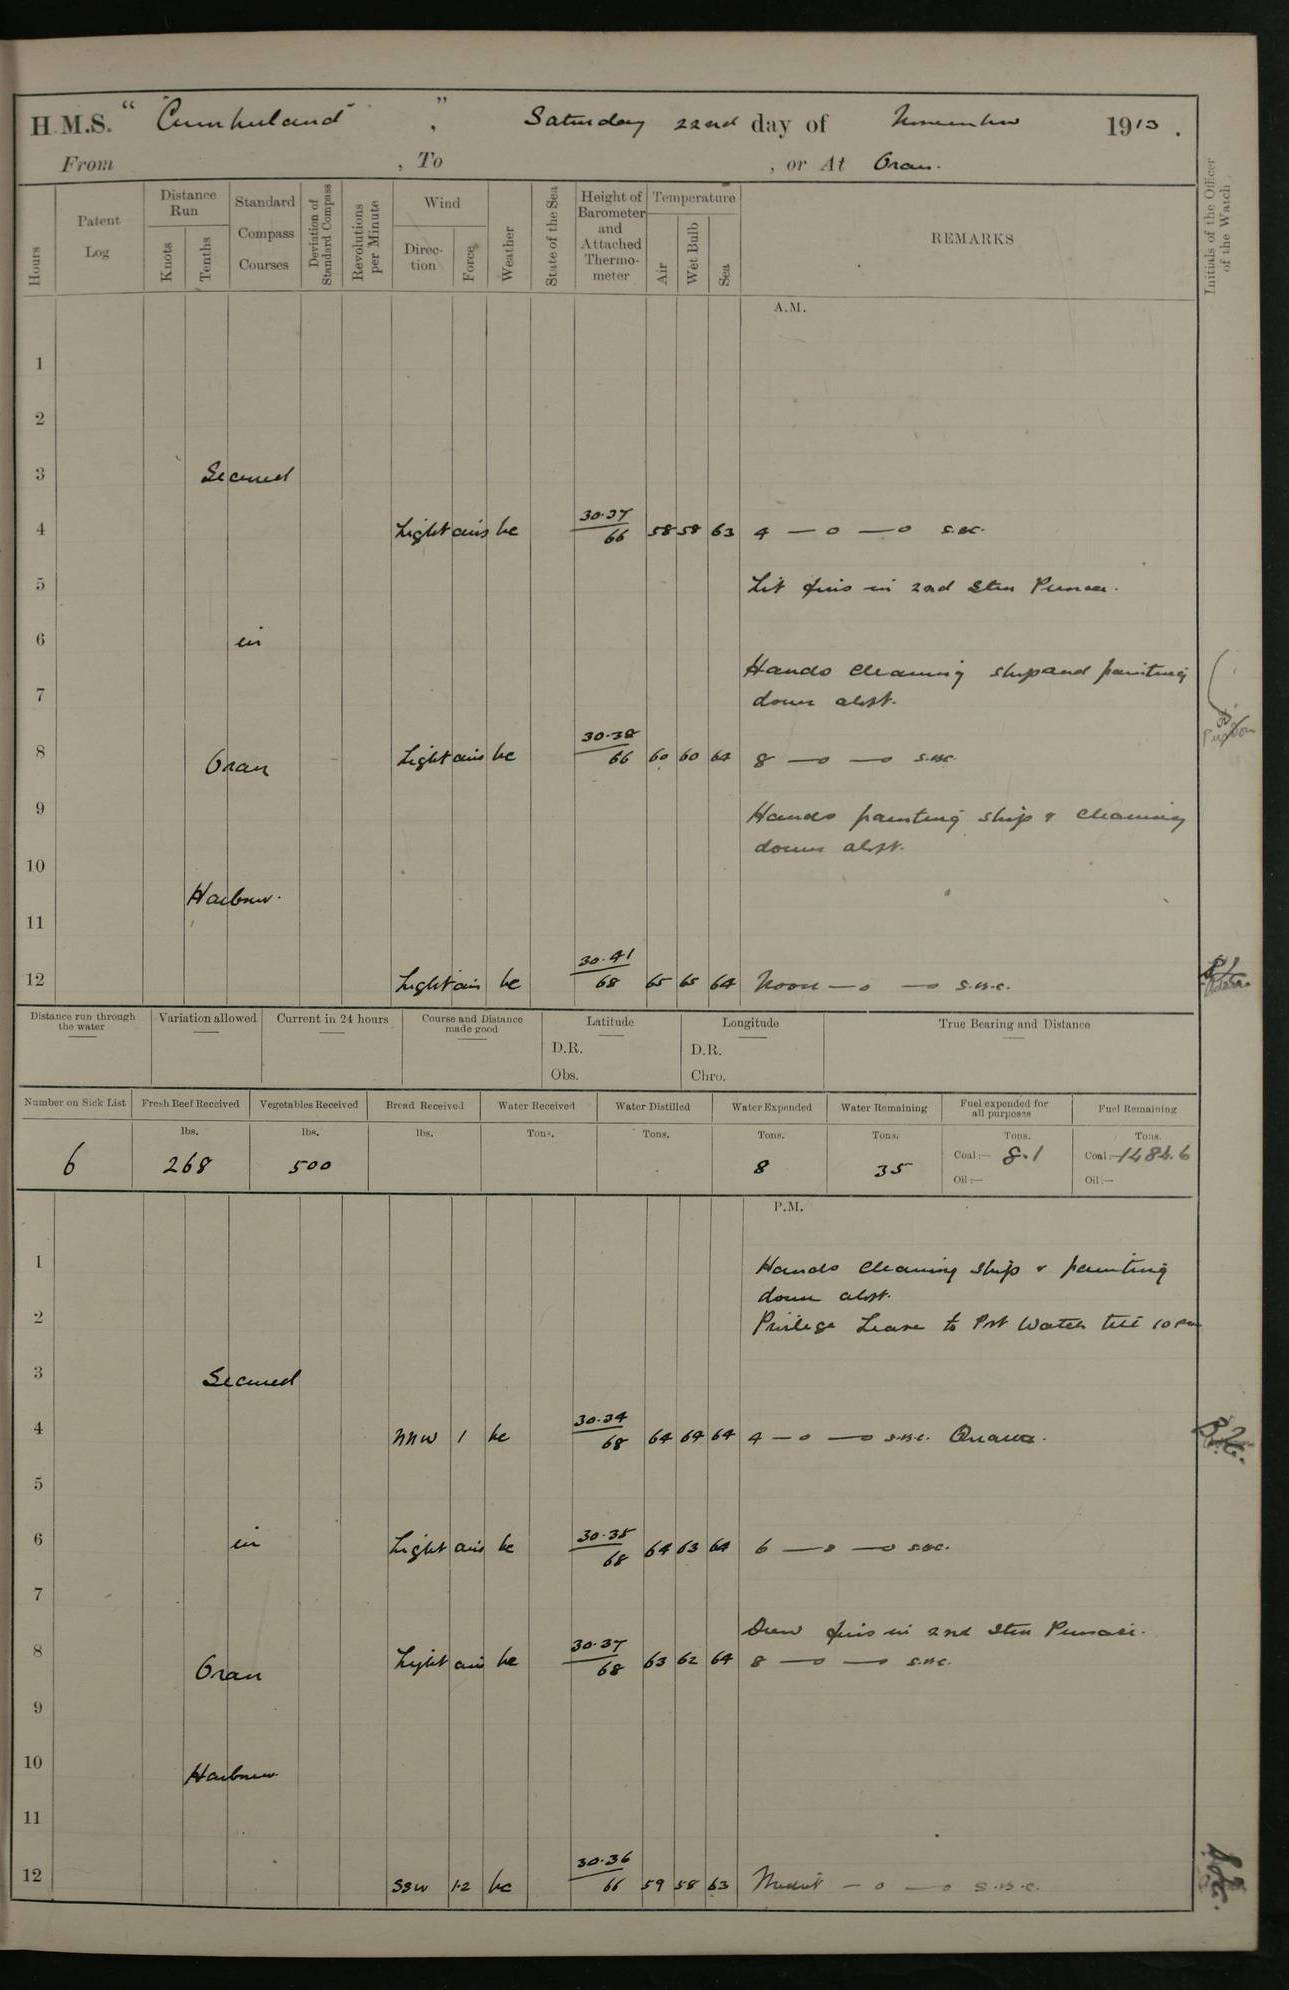 H.M.S. "Cumberland", Saturday 22nd day of November 1913.
From , To , or At Oran.
Hours
Patent Log
Distance Run
Knots
Tenths
Standard Compass Courses
Deviation of Standard Compass
Revolutions per Minute
Wind
Direction
Force
Weather
State of the Sea
Height of Barometer and Attached Thermometer
Temperature
Air
Wet Bulb
Sea
REMARKS
Initials of the Officer of the Watch
A.M.
1
2
3 Secured
4 Light airs bc 30.37 66 58 58 63 4 —o —o s.b.c.
5 Lit fires in 2nd Stm Pinnace.
6 in
Hands cleaning ship and painting
7 down aloft.
8 Oran Light airs bc 30.38 66 60 60 64 8 —o —o s.b.c.
9 Hands painting ship & cleaning
down aloft.
10
Harbour.
11
12 Light airs bc 30.41 68 65 65 64 Noon —o —o s.b.c.
Distance run through the water
Variation allowed
Current in 24 hours
Course and Distance made good
Latitude
D.R.
Obs.
Longitude
D.R.
Chro.
True Bearing and Distance
Number on Sick List
6
Fresh Beef Received
lbs.
268
Vegetables Received
lbs.
500
Bread Received
lbs.
Water Received
Tons.
Water Distilled
Tons.
Water Expended
Tons.
8
Water Remaining
Tons.
35
Fuel expended for all purposes
Tons.
Coal:— 8.1
Oil:—
Fuel Remaining
Tons.
Coal:— 1484.6
Oil:—
P.M.
1 Hands cleaning ship & painting
down aloft.
2 Privilege Leave to Port Watch till 10 pm
3 Secured
4 NNW 1 bc 30.34 68 64 64 64 4 —o —o s.b.c. Quarters.
5
6 in Light airs bc 30.35 68 64 63 64 6 —o —o s.b.c.
7
Drew fires in 2nd Stm Pinnace.
8 Oran Light airs bc 30.37 68 63 62 64 8 —o —o s.b.c.
9
10 Harbour
11
12 SSW 1-2 bc 30.36 66 59 58 63 Midnt —o —o s.b.c.